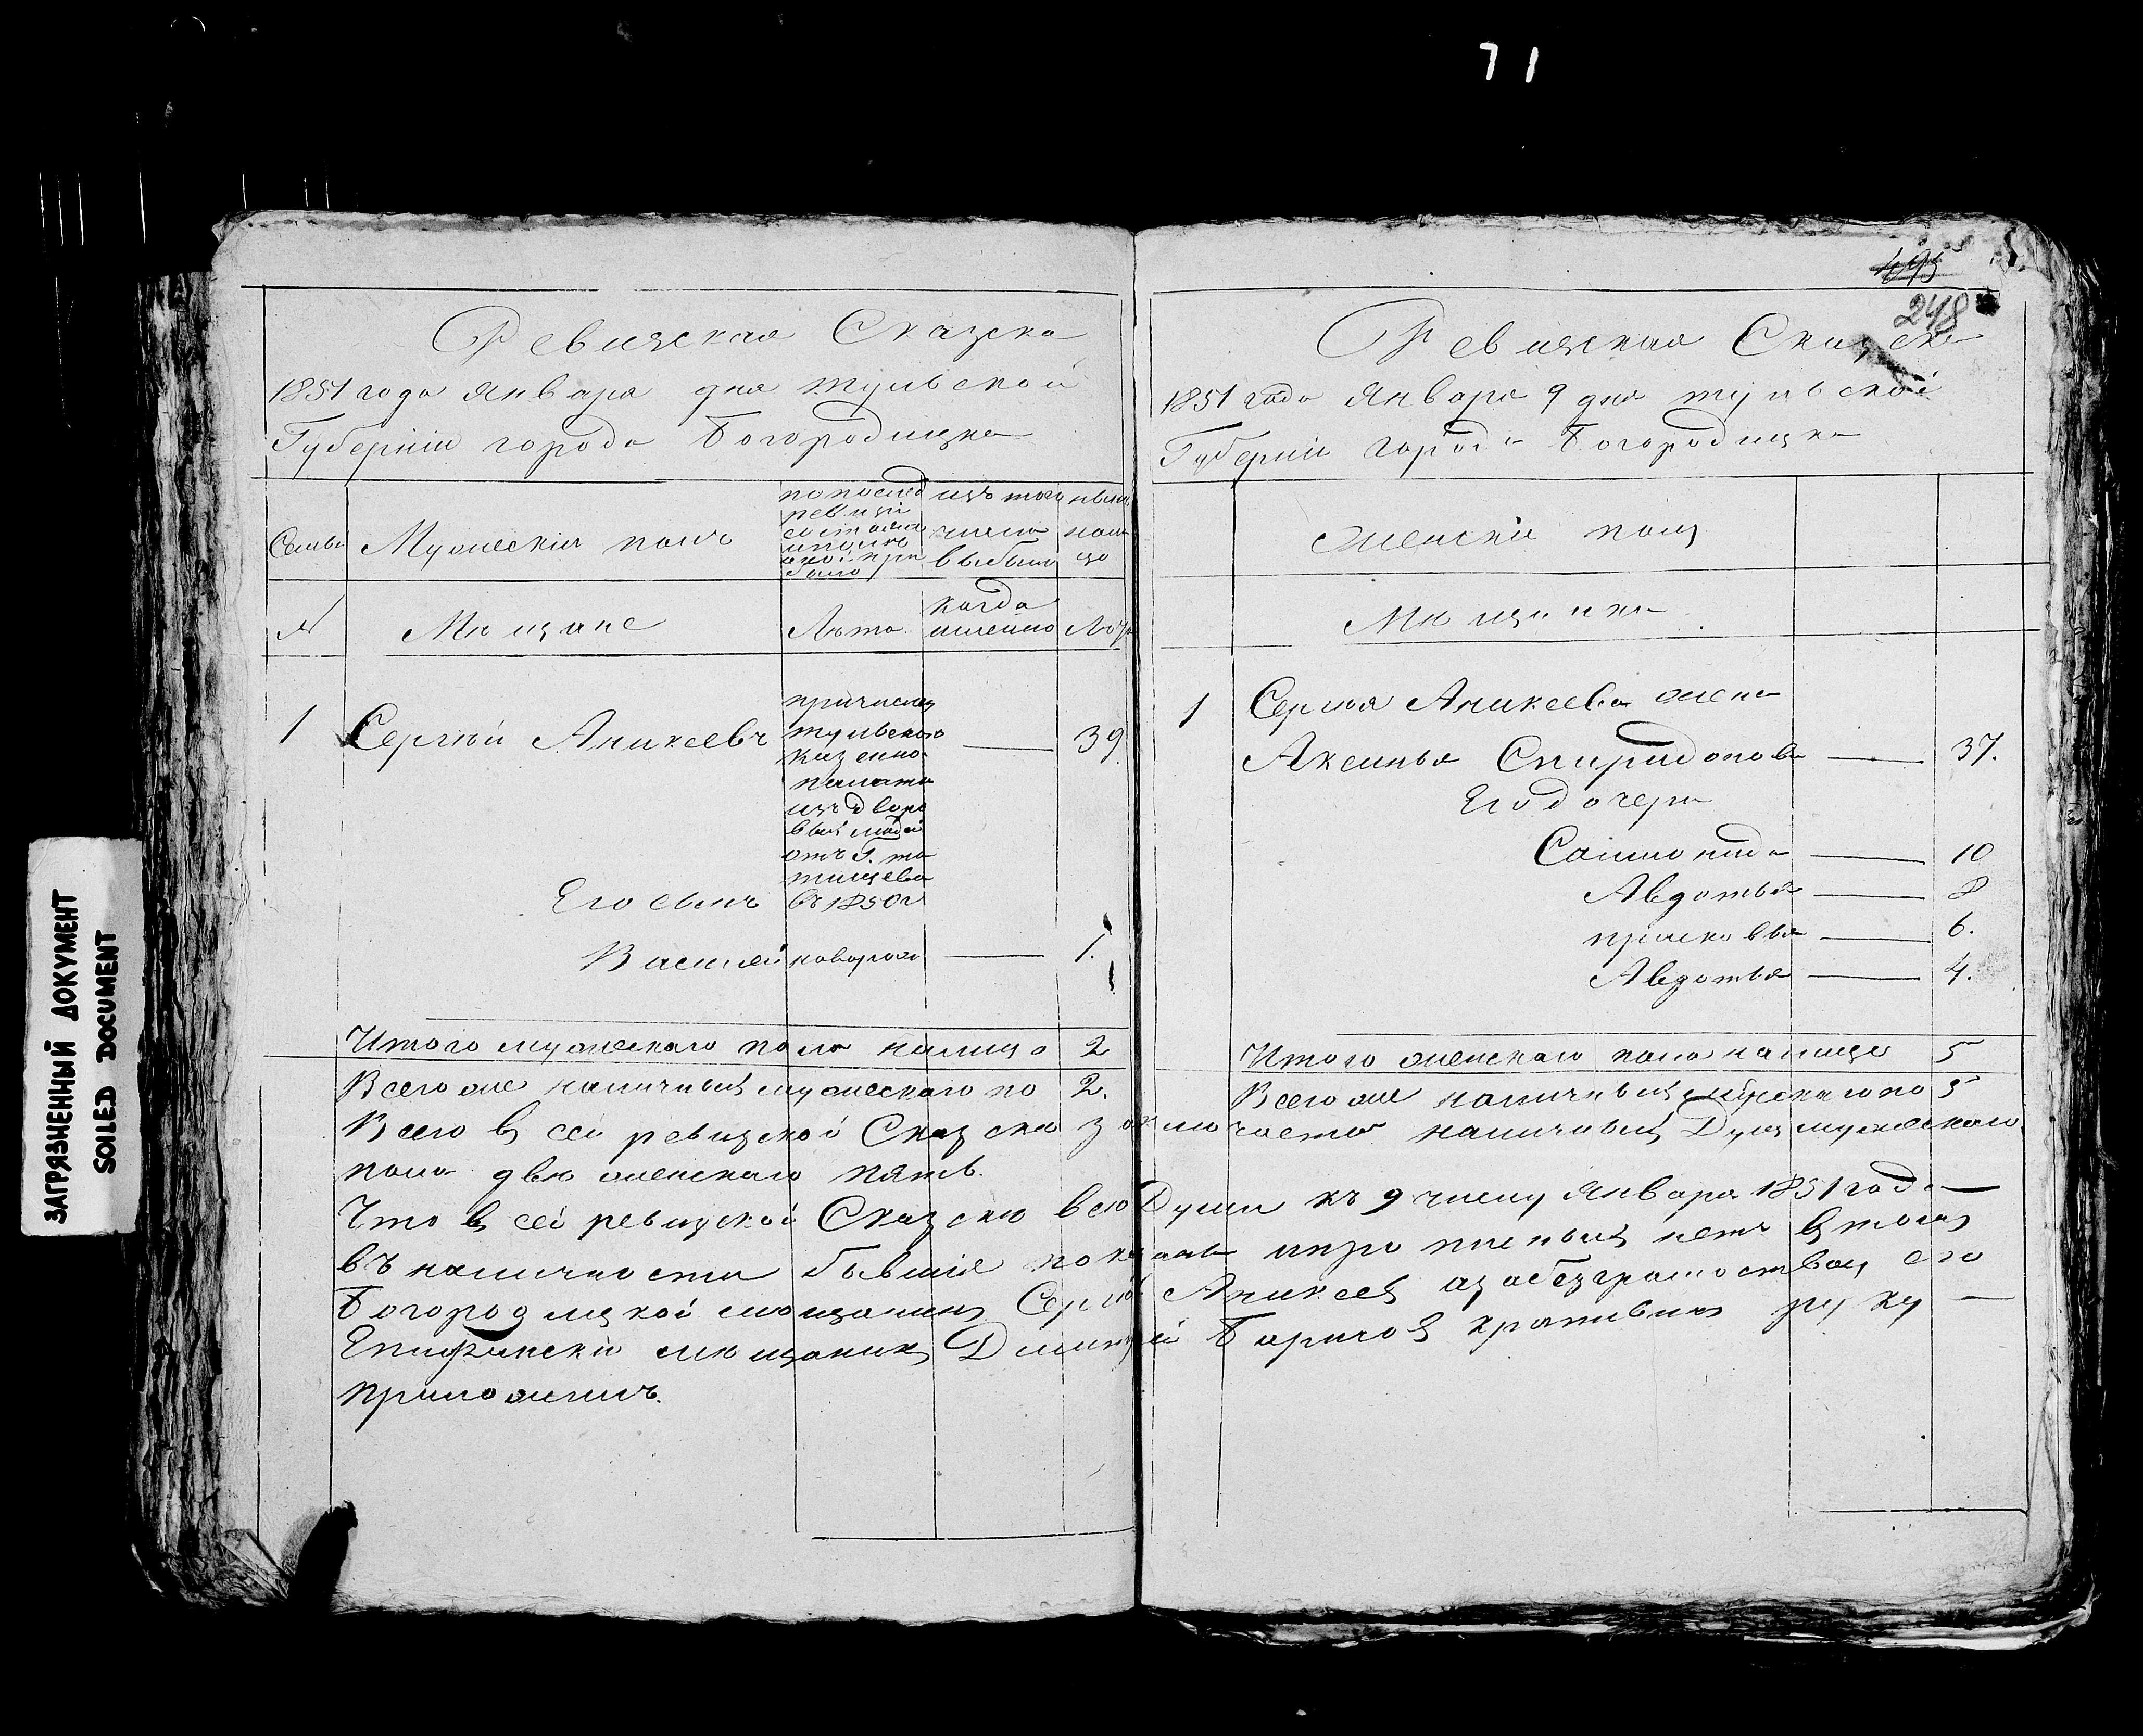 71
ЗАГРЯЗНЕННЫЙ ДОКУМЕНТ
SOILED DOCUMENT
Ревизская Сказка
1851 года Января дня тульской
Губерніи города Богородицка
Семьи
Мужескій полъ
по послед
ревизіи
состояло
изъ того
числа
выбыло
ныне
нали
цо
№
Мещане
Лета
когда
именно
Лета
1 Сергей Аникеевъ
причислен
тульскою
казенно
палато
изъ дворо
выхъ людей
отъ Г. та
тищева
въ 1850 г
39
Его сынъ
Василей новорож 1.
Итого мужескаго пола налицо 2
Всего же наличныхъ мужескаго по 2.
495
248
Ревизская Сказка
1851 года Января 9 дня тульской
Губерніи города Богородицка
женскій полъ
Мещанки
1 Сергея Аникеева жена
Аксинья Спиридонова 37.
Его дочери
Саломонида 10
Авдотья 8
прасковья 6.
Авдотья 4.
Итого женскаго пола налицо 5
Всего же наличныхъ женскаго по 5
Всего въ сей ревизской Сказке заключается наличныхъ Душъ мужескаго
пола две женскаго пять.
Что въ сей ревизской Сказке все Души къ 9 числу Января 1851 года
въ наличности бывшіе показаны и прописныхъ нетъ въ томъ
Богородицкой мещанинъ Сергей Аникеев а за безграмотством его
Епифанскій мещанинъ Дмитрей руку
приложилъ.